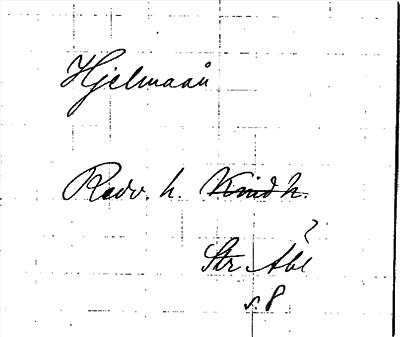 Hjelmaån
Redv. h. Kind h.
?
Str Abl
s. 8